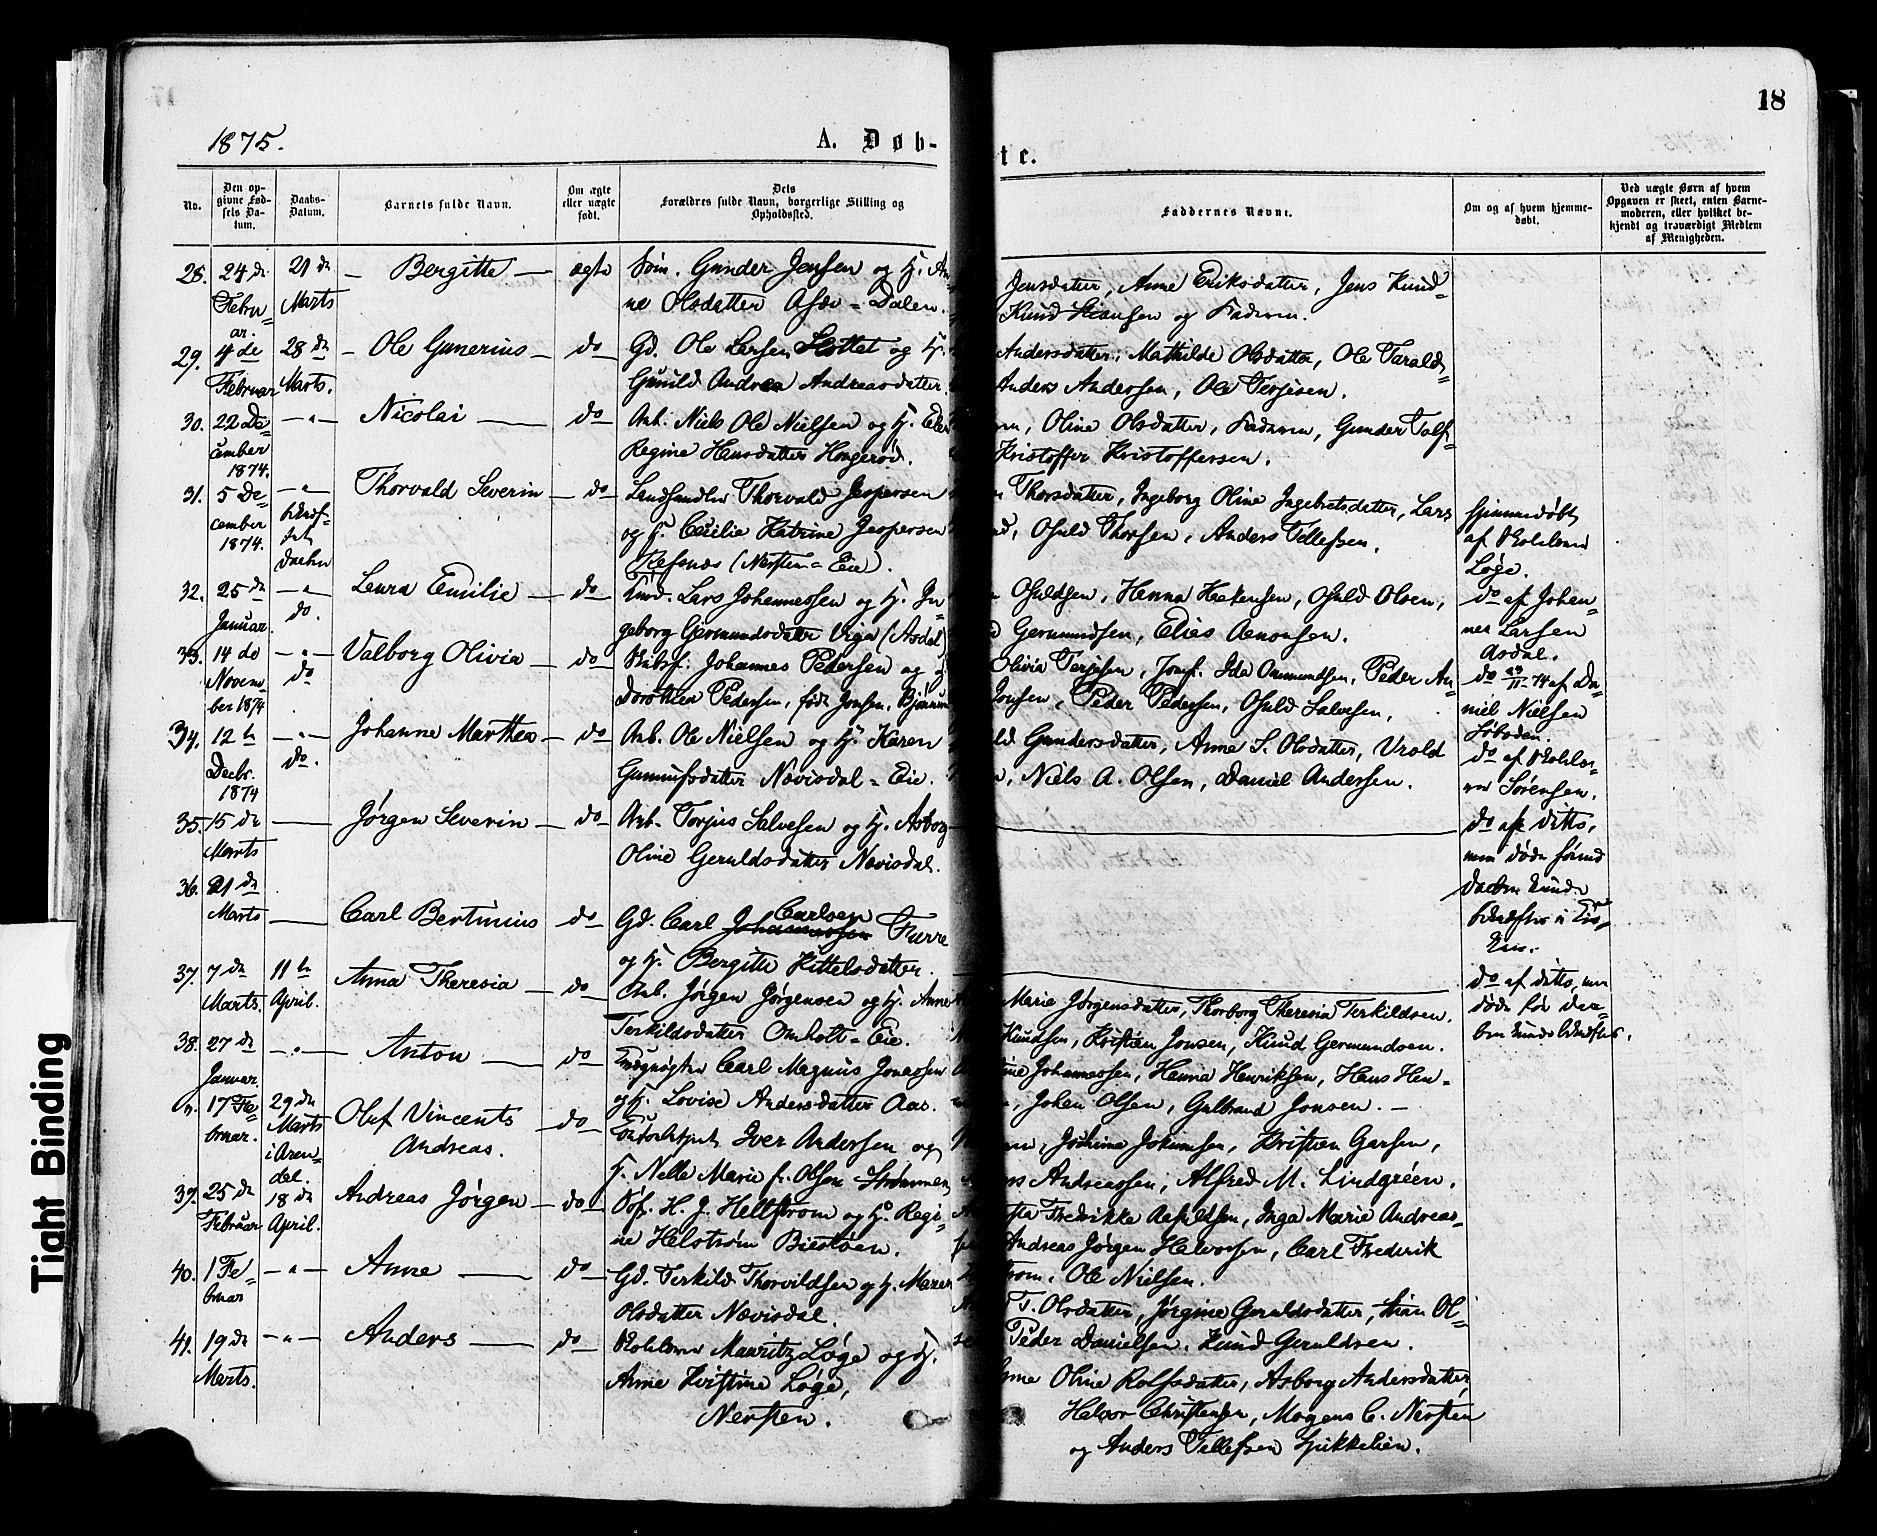 18
1875.
A. Døb-
te.
No.
Den op-
givne Fød-
sels Da-
tum.
Daabs-
Datum.
Barnets fulde Navn.
Om ægte
eller uægte
født.
Dets
Forældres fulde Navn, borgerlige Stilling og
Opholdssted.
Faddernes Navne.
Om og af hvem hjemme-
døbt.
Ved uægte Børn af hvem
Opgaven er skeet, enten Barne-
moderen, eller hvilket be-
kjendt og troværdigt Medlem
af Menigheden.
28. 24 de Februar. 21 de Marts Bergitte ægte
Gunder Jensen og H. An-
ne Olsdatter Asdal-Dalen.
Jensdatter, Anne Eriksdatter, Jens Knud-
Knud Hansen og Faderen.
29. 4 de Februar 28 de Marts. Ole Gunerius do
Gd. Ole Larsen Slottet og H.
Gunild Andrea Andreasdatter
Andersdatter, Mathilde Olsdatter, Ole Tarald-
Anders Andersen, Ole Terjesen.
30. 22 December 1874. Nicolai do
Arb. Niels Ole Nielsen og H. Elen
Regine Hansdatter Hougerød.
Oline Olsdatter, Faderen, Gunder Tolf-
Kristoffer Kristoffersen.
31. 5 December 1874. bekræftet Daaben Thorvald Severin do
Landhandler Thorvald Jespersen
og H. Cecilie Katrine Jespersen
Refsnes (Nersten-Eie).
Thorsdatter, Ingeborg Oline Ingebretsdatter, Lars
Osuld Thorsen, Anders Tellefsen.
hjemmedøbt
af Skolelærer
Løge.
32. 25 de Januar. do. Laura Emilie do
Lars Johannessen og H. In-
geborg Germundsdatter Viga (Asdal)
Osuldsen, Hanna Haakensen, Osuld Olsen,
Germundsen, Elies Aanonsen.
do af Johan-
nes Larsen
Asdal.
33. 14 de November 1874 do Valborg Olivia do
Skibsf. Johannes Pedersen og
Dorothea Pedersen, født Jonsen, Bjønnum
Olivia Terjesen, Jomf. Ida Ommundsen, Peder An-
Jonsen, Peder Pedersen, Osuld Salvesen,
do 23/11-74 af Da-
niel Nielsen
34. 12 te Decbr. 1874 do. Johanne Marthea do
Arb. Ole Nielsen og H. Karen
Gunnufsdatter Nævisdal-Eie.
Gundersdatter, Anne S. Olsdatter, Vrold
Niels A. Olsen, Daniel Andersen.
do af Skolelæ-
rer Sørensen.
35. 15 de Marts Jørgen Severin do
Arb. Torjus Salvesen og H. Asborg
Oline Geruldsdatter Nævisdal.
do af ditto,
men døde førend
Daaben kunde
bekræftes i Kir-
ken.
36. 21 de Marts Carl Bertinius do
Gd. Carl Johannessen Carlsen Furre
og H. Bergitte Kittelsdatter.
do af ditto, men
døde før Daa-
ben kunde bekræftes.
37. 7 de Marts. 11 te April. Anna Theresia do
Arb. Jørgen Jørgensen og H. Anne
Terkildsdatter Omholt-Eie.
Marie Jørgensdatter, Thorborg Theresia Terkildsen.
Knudsen, Kristen Jonsen, Knud Germundsen.
38. 27 de Januar. Anton do
Carl Magnus Jonassen
og H. Lovise Andersdatter Aas.
Johannessen, Hanna Henriksen, Hans Hen-
Johan Olsen, Gulbrand Jonsen.
17 Februar. 29 de Marts i Arendal. Oluf Vincents Andreas. do
Iver Andersen og
H. Nelle Marie f. Olsen Strømmen
Jochine Jokumsen, Kristen Garsen,
Andreassen, Alfred M. Lindgréen.
39. 25 de Februar 18 de April. Andreas Jørgen do
H. J. Hellstrøm og H. Regi-
ne Helstrøm Biestøen.
Fredrikke Axelsen, Inga Marie Andreas-
Andreas Jørgen Halvorsen, Carl Frederik
Ole Nielsen.
40. 1 Februar Anne do
Gd. Terkild Thorvildsen og H. Maren
Olsdatter Nævisdal.
T. Olsdatter, Jørgine Geruldsdatter, Stian Ol-
Peder Danielsen. Knud Geruldsen.
41. 19 de Marts. Anders do
Skolelærer Mauritz Løge og H.
Anne Kristine Løge,
Nersten.
Oline Rolfsdatter, Asborg Andersdatter,
Halvor Christensen, Mogens C. Nersten
og Anders Tellefsen Spikkelien.
Tight Binding